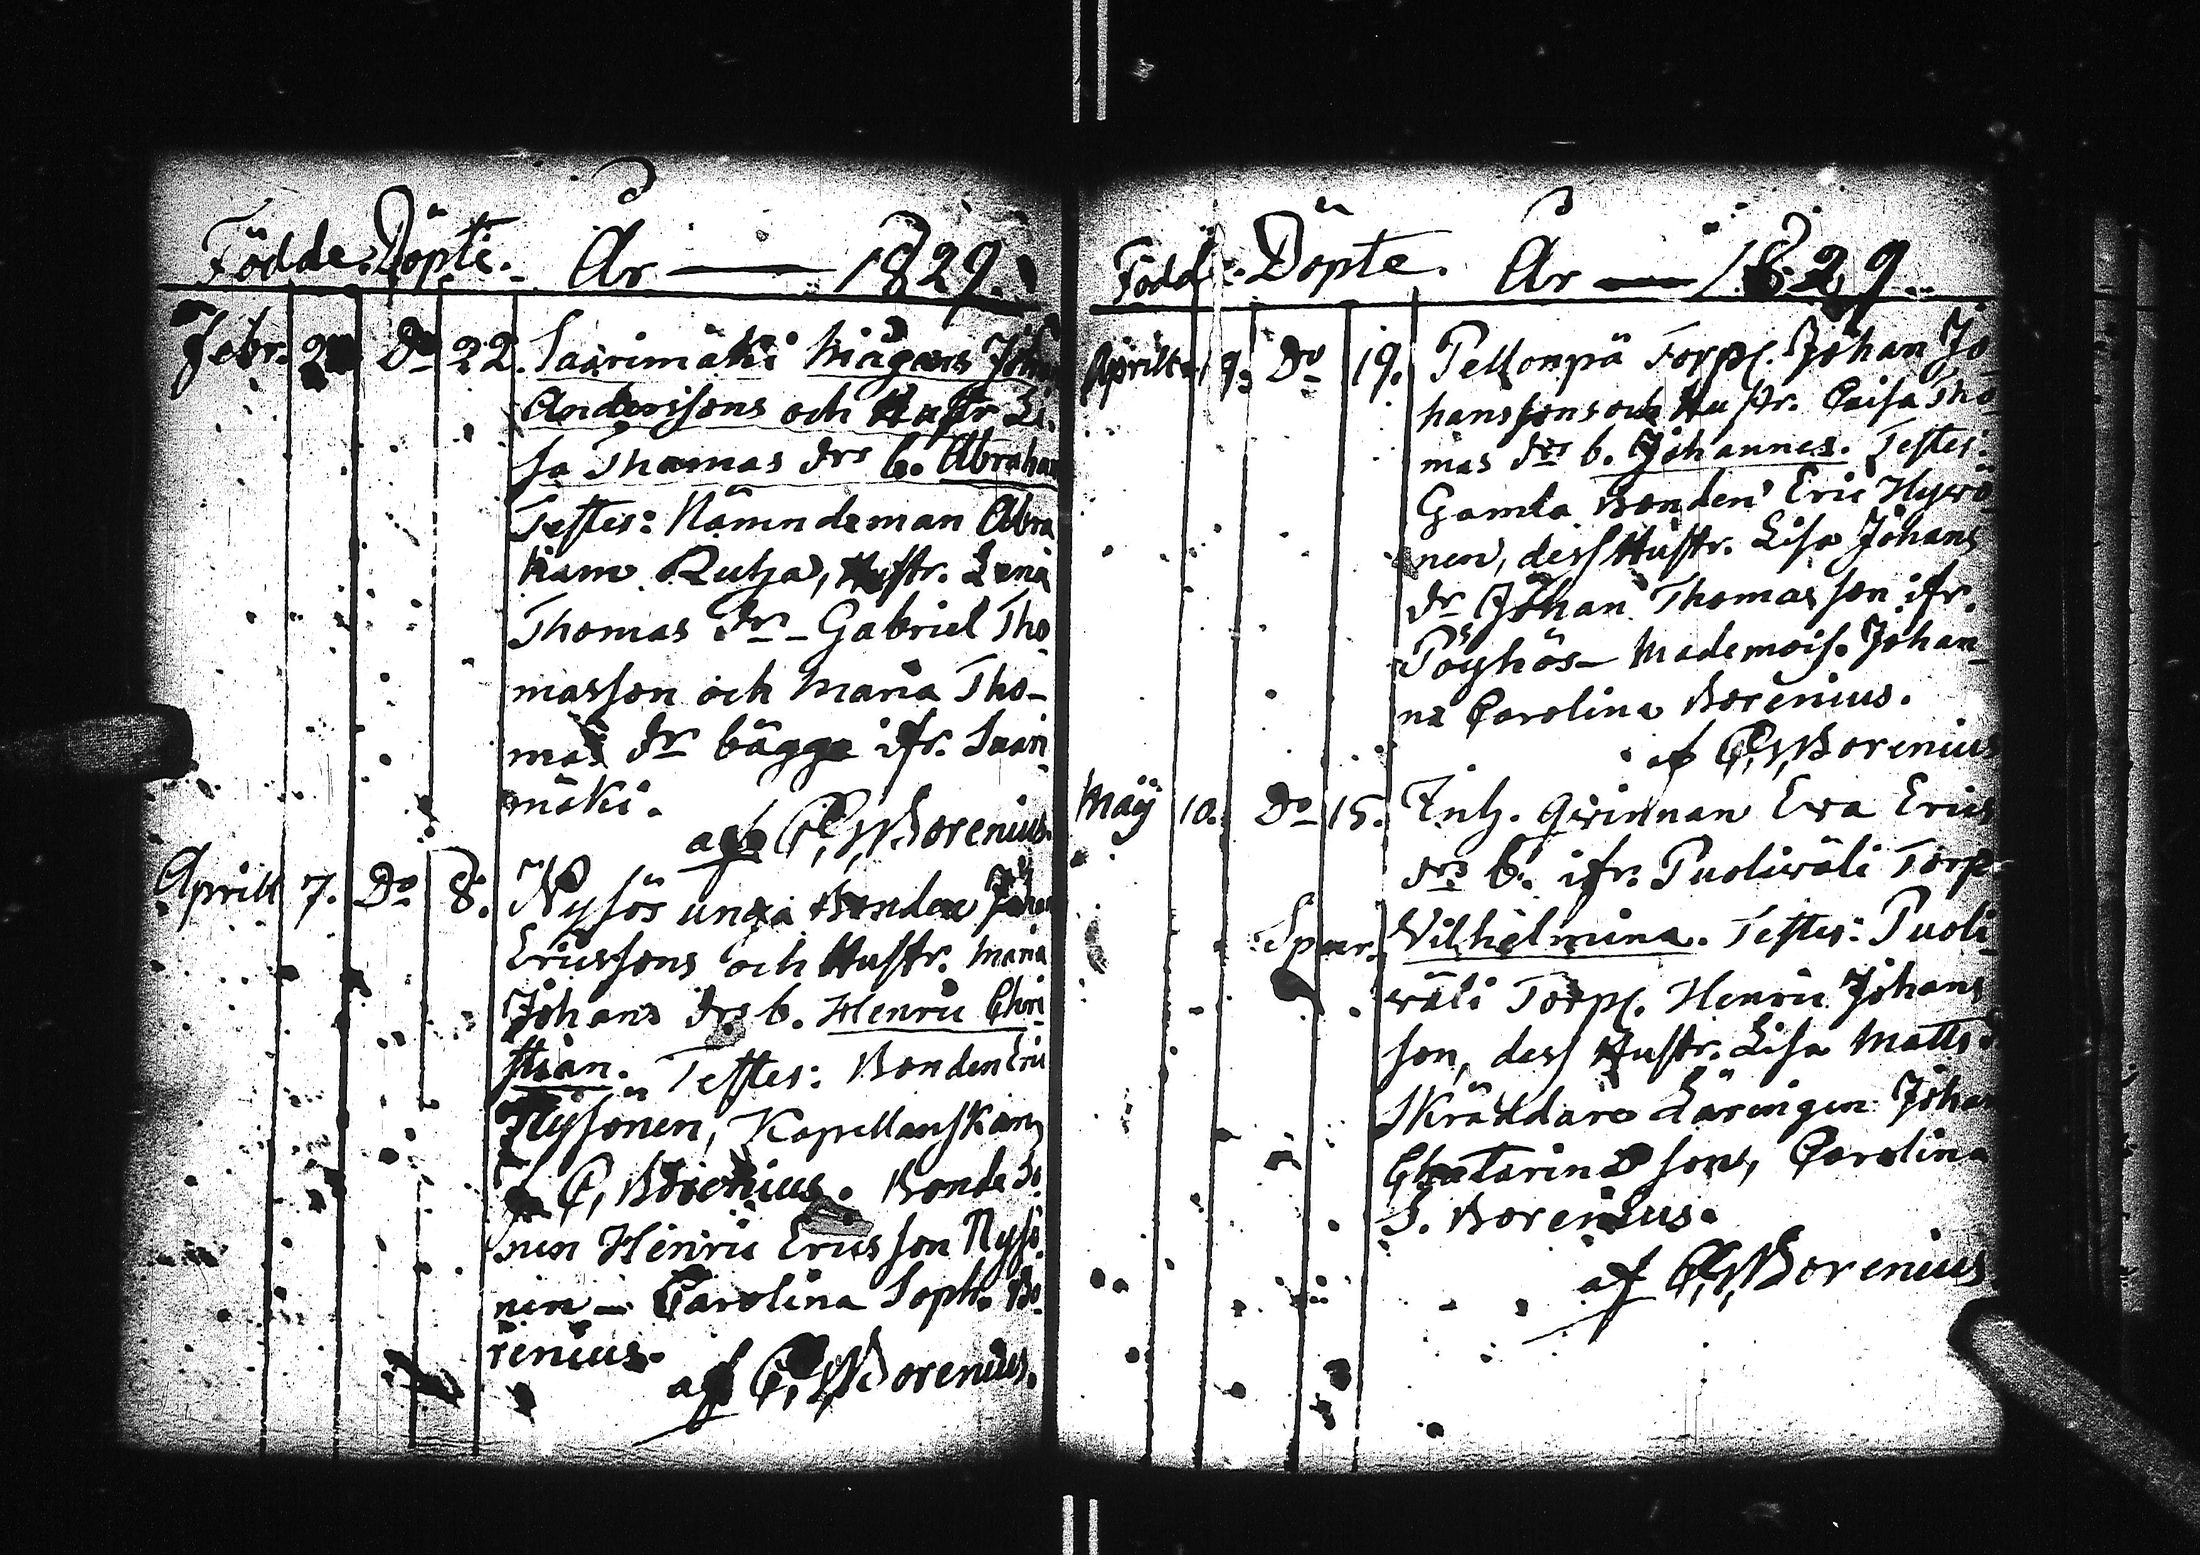 Födde. Döpte. År — 1829.
Febr. Do 22. Saarimäki Mågens Johan
Anderssons och Hustr. Li-
sa Thomas drs b. Abraham
Testes: Nämndeman Abra
ham Rutja, Hustr. Lena
Thomas dr - Gabriel Tho
masson och Maria Tho-
mas dr bägge ifr. Saari
mäki.
af C. W. Borenius.
Aprill 7. Do 8. Nysös unga Bonden Johan
Ericssons och Hustr. Maria
Johans drs b. Henric Chri
stian. Testes: Bonden Eric
Nysönen, Kapellanskan
C. Borenius. Bonde So
nen Henric Ericsson Nysö
nen — Carolina Soph. Bo
renius.
af C. W. Borenius.
Födde. Döpte. År — 1829.
Aprill 19. Do 19. Pellonpä Torp. Johan Jo
hanssons och Hustr. Caisa Tho
mas drs b. Johannes. Testes:
Gamla Bonden Eric Hyvö
nen, dess Hustr. Lisa Johans
dr Johan Thomasson ifr.
Pöyhös - Mademois. Johan-
na Carolina Borenius.
af C. W. Borenius
Maÿ 10. Do 15. Inh. qwinnan Ewa Erics
drs b. ifr. Puoliwäli Torp
Spur. Vilhelmina. Testes: Puoli
wäli Torp. Henric Johans
son, dess Hustr. Lisa Matts
Skräddare Läringen Johan
Chatarin son, Carolina
S. Borenius.
af C. W. Borenius